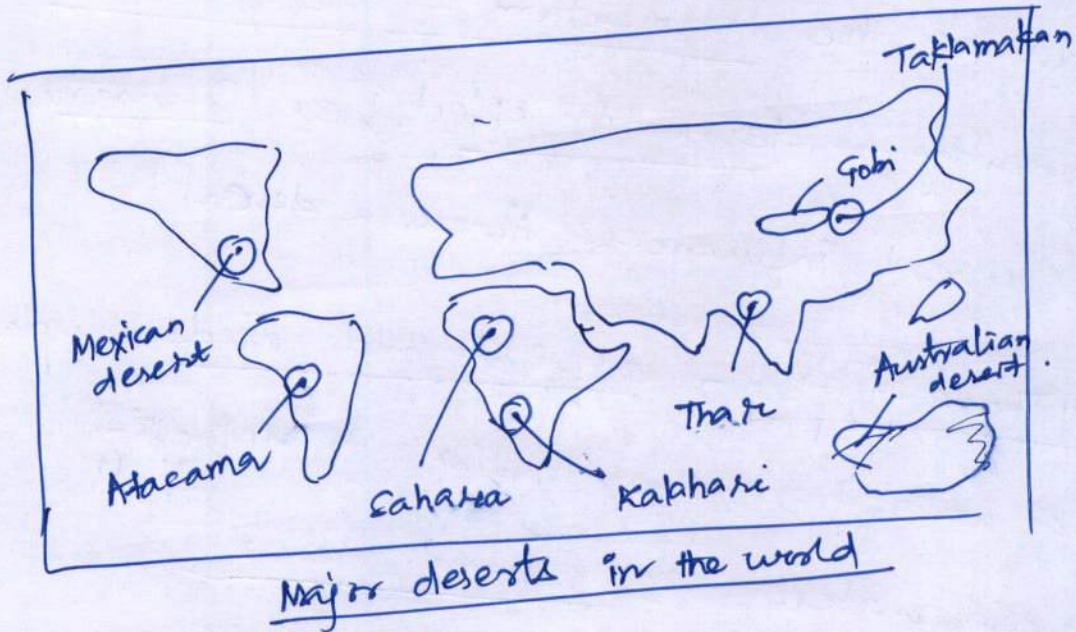 Taklamakan
Gobi
Mexican
desert
Australian
desert.
Thar
Atacama
Sahara
Kalahari
Major deserts in the world